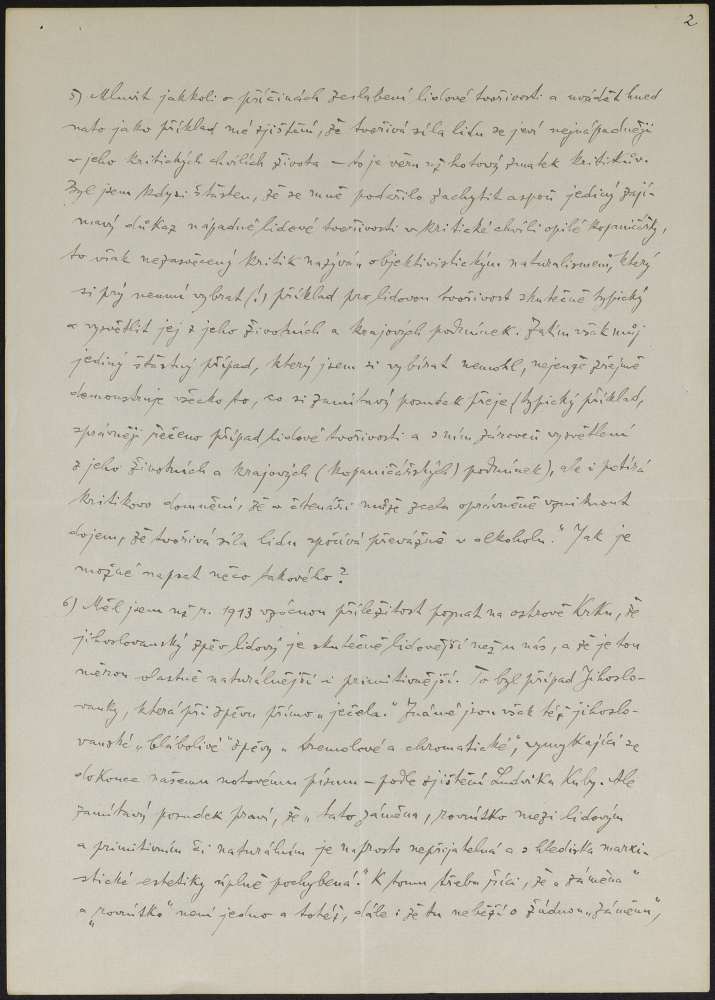 2
5) Mluvit jakkoli o příčinách zeslabení lidové tvořivosti a uvádět hned
nato jako příklad mé zjištění, že tvořivá síla lidu se jeví nejnápadněji
v jeho kritických chvílích života – to je věru už hotový zmatek kritikův.
Byl jsem kdysi šťasten, že se mně podařilo zachytit aspoň jediný zají-
mavý důkaz nápadné lidové tvořivosti v kritické chvíli opilé kopaničářky,
to však nezasvěcený kritik nazývá „objektivistickým naturalismem, který
si prý neumí vybrat (!) příklad pro lidovou tvořivost skutečně typický
a vysvětlit jej z jeho životních a krajových podmínek. Zatím však můj
jediný šťastný případ, který jsem si vybírat nemohl, nejenže zřejmě
demonstruje všecko to, co si zamítavý posudek přeje (typický příklad,
správněji řečeno případ lidové tvořivosti a s ním zároveň vysvětlení
z jeho životních a krajových (kopaničářských) podmínek), ale i potírá
kritikovo domnění, že „v čtenáři může zcela oprávněně vzniknout
dojem, že tvořivá síla lidu spočívá převážně v alkoholu.“ Jak je
možné napsat něco takového?
6) Měl jsem už r. 1913 vzácnou příležitost poznat na ostrově Krku, že
jihoslovanský zpěv lidový je skutečně lidovější než u nás, a že je tou
měrou vlastně naturálnější i primitivnější. To byl případ Jihoslo-
vanky, která při zpěvu přímo „ječela.“ Známé jsou však též jihoslo-
vanské „blábolivé“ zpěvy „tremolové a chromatické“, vymykající se
dokonce našemu notovému písmu – podle zjištění Ludvíka Kuby. Ale
zamítavý posudek praví, že „tato záměna, rovnítko mezi lidovým
a primitivním či naturálním je naprosto nepřijatelná a s hlediska marxi-
stické estetiky úplně pochybená.“ K tomu třeba říci, že „záměna“
a „rovnítko“ není jedno a totéž, dále i že tu neběží o žádnou „záměnu“,